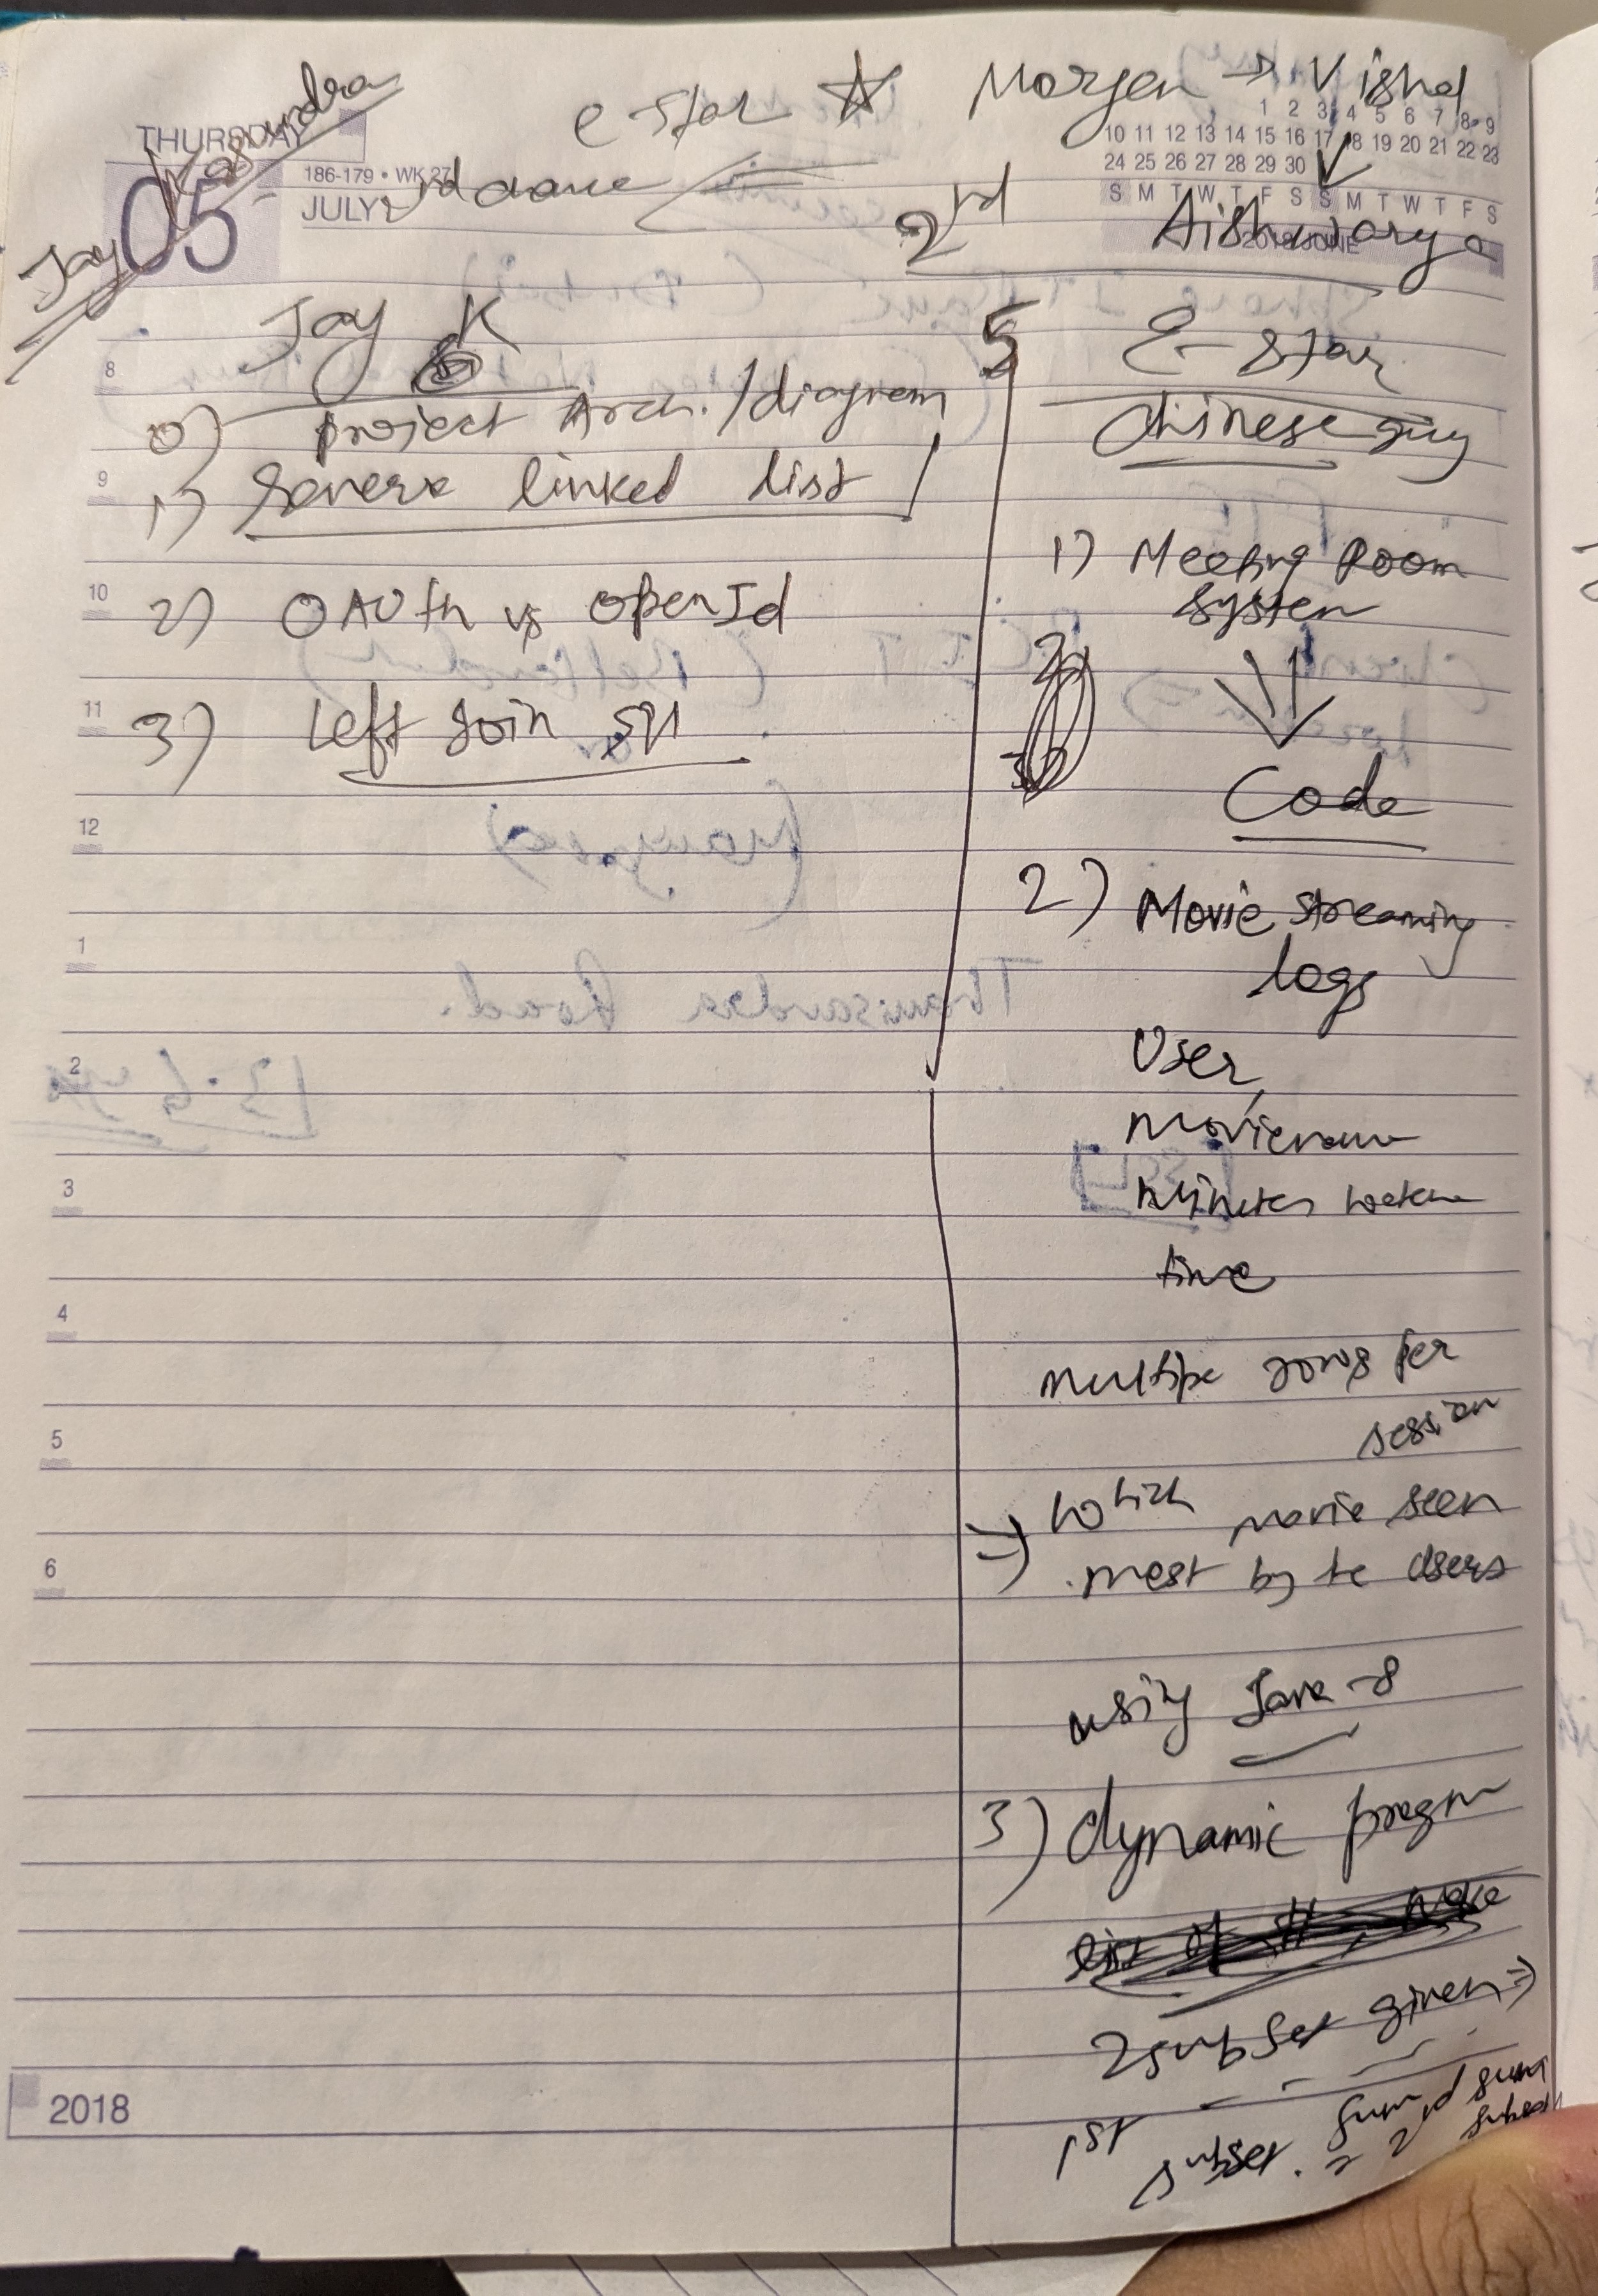 Jay Kasundra
e-star ☆ Morgen → Vishal
THURSDAY
05
186-179 • WK 27
JULY
1 2 3 4 5 6 7 8 9
10 11 12 13 14 15 16 17 18 19 20 21 22 23
24 25 26 27 28 29 30
S M T W T F S S M T W T F S
2018 JUNE
2rd Aishwarya
Jay K
0) project Arch. / diagram
1) Reverse linked list
2) OAuth vs openId
3) Left Join
8
9
10
11
12
1
2
3
4
5
6
2018
E-star
Chinese guy
1) Meeting Room
system
Code
2) Movie streaming
logs
User,
Moviename
Minutes
time
multiple rows per
session
→ which movie seen
most by te users
using Java-8
3) dynamic progm
2 subset given ⇒
1st subset. sum = 2nd sum subset